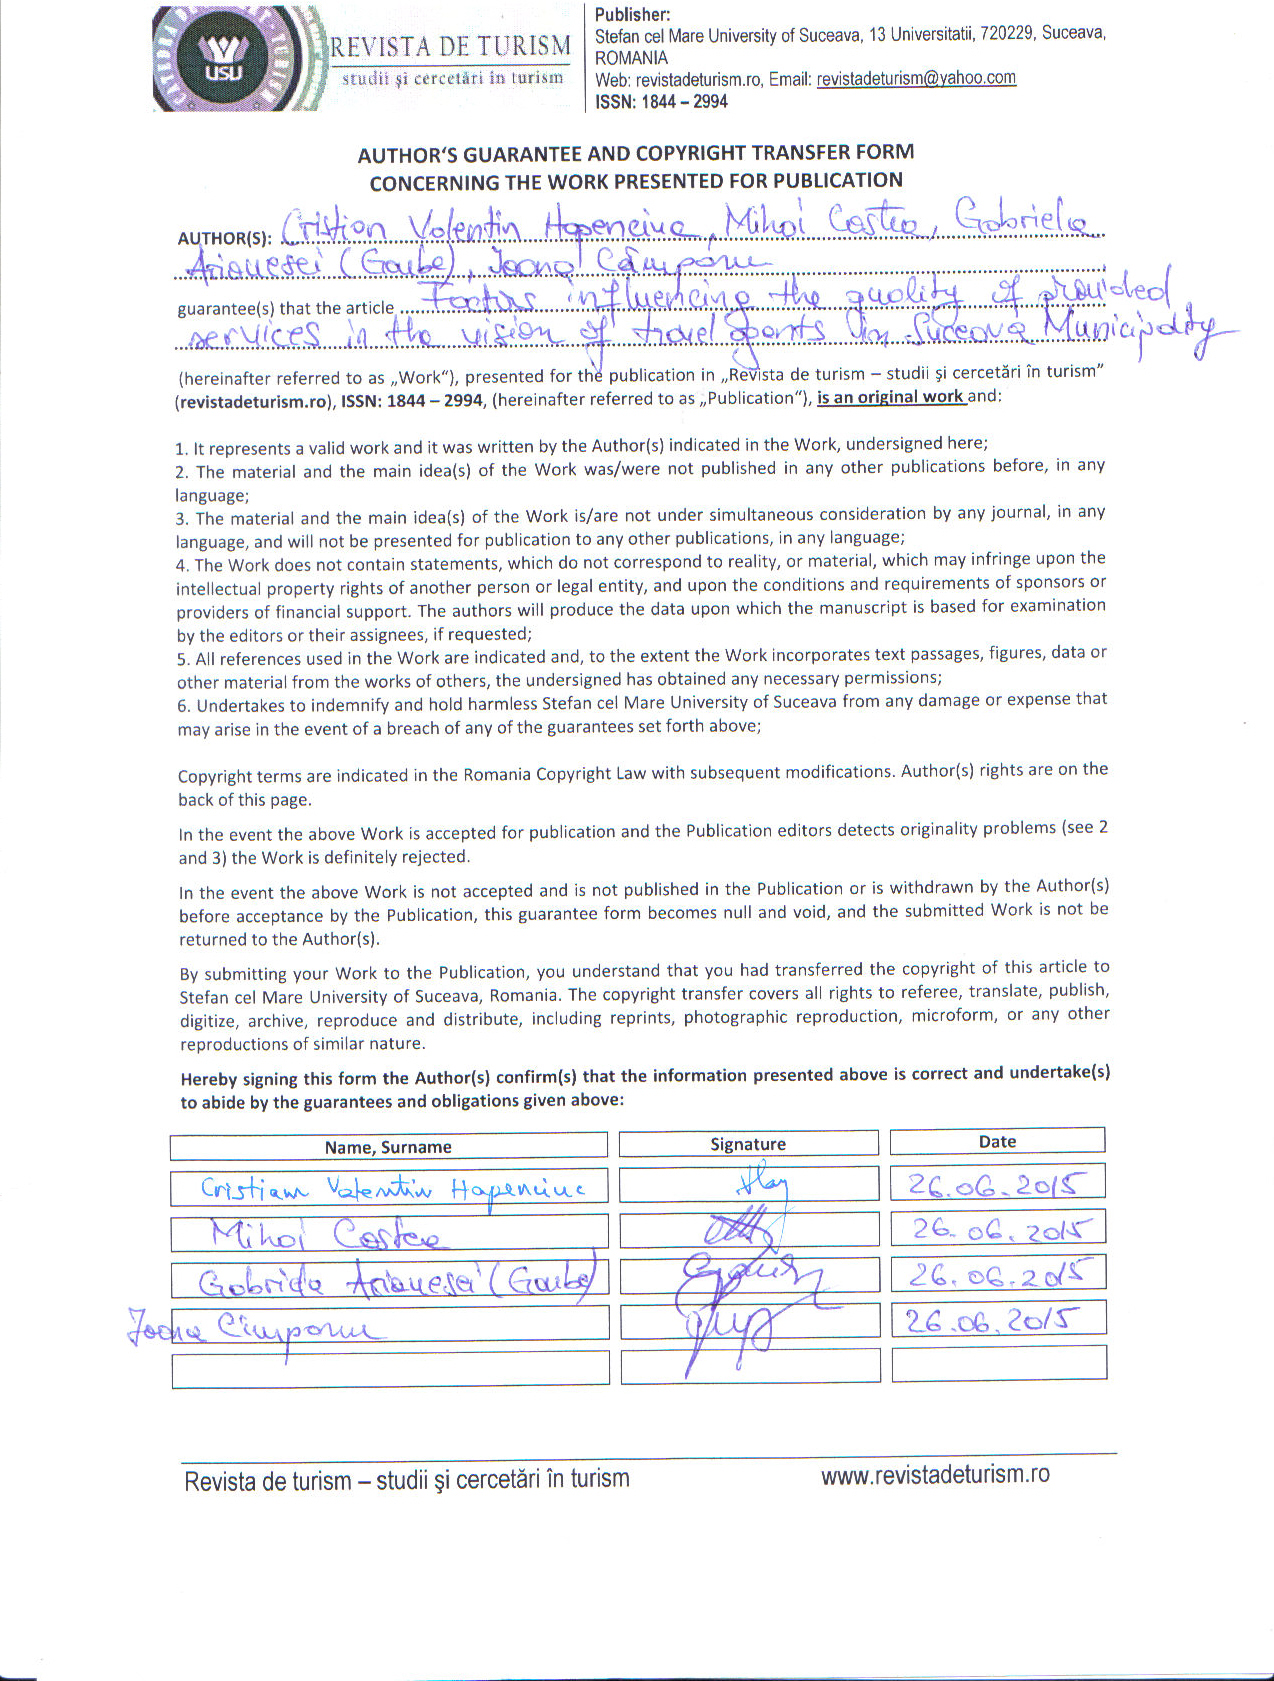 USU
REVISTA DE TURISM
studii și cercetări în turism
Publisher:
Stefan cel Mare University of Suceava, 13 Universitatii, 720229, Suceava,
ROMANIA
Web: revistadeturism.ro, Email: revistadeturism@yahoo.com
ISSN: 1844 – 2994
AUTHOR'S GUARANTEE AND COPYRIGHT TRANSFER FORM
CONCERNING THE WORK PRESENTED FOR PUBLICATION
AUTHOR(S): Cristian Valentin Hapenciuc, Mihai Costea, Gabriela
Arionesei (Gaube), Ioana Câmpanu
guarantee(s) that the article Factors influencing the quality of provided
services in the vision of travel agents in Suceava Municipality
(hereinafter referred to as „Work“), presented for the publication in „Revista de turism – studii și cercetări în turism”
(revistadeturism.ro), ISSN: 1844 – 2994, (hereinafter referred to as „Publication“), is an original work and:
1. It represents a valid work and it was written by the Author(s) indicated in the Work, undersigned here;
2. The material and the main idea(s) of the Work was/were not published in any other publications before, in any
language;
3. The material and the main idea(s) of the Work is/are not under simultaneous consideration by any journal, in any
language, and will not be presented for publication to any other publications, in any language;
4. The Work does not contain statements, which do not correspond to reality, or material, which may infringe upon the
intellectual property rights of another person or legal entity, and upon the conditions and requirements of sponsors or
providers of financial support. The authors will produce the data upon which the manuscript is based for examination
by the editors or their assignees, if requested;
5. All references used in the Work are indicated and, to the extent the Work incorporates text passages, figures, data or
other material from the works of others, the undersigned has obtained any necessary permissions;
6. Undertakes to indemnify and hold harmless Stefan cel Mare University of Suceava from any damage or expense that
may arise in the event of a breach of any of the guarantees set forth above;
Copyright terms are indicated in the Romania Copyright Law with subsequent modifications. Author(s) rights are on the
back of this page.
In the event the above Work is accepted for publication and the Publication editors detects originality problems (see 2
and 3) the Work is definitely rejected.
In the event the above Work is not accepted and is not published in the Publication or is withdrawn by the Author(s)
before acceptance by the Publication, this guarantee form becomes null and void, and the submitted Work is not be
returned to the Author(s).
By submitting your Work to the Publication, you understand that you had transferred the copyright of this article to
Stefan cel Mare University of Suceava, Romania. The copyright transfer covers all rights to referee, translate, publish,
digitize, archive, reproduce and distribute, including reprints, photographic reproduction, microform, or any other
reproductions of similar nature.
Hereby signing this form the Author(s) confirm(s) that the information presented above is correct and undertake(s)
to abide by the guarantees and obligations given above:
Name, Surname Signature Date
Cristian Valentin Hapenciuc 26.06.2015
Mihai Costea 26.06.2015
Gabriela Arionesei (Gaube) 26.06.2015
Ioana Cîmpanu 26.06.2015
Revista de turism – studii și cercetări în turism www.revistadeturism.ro